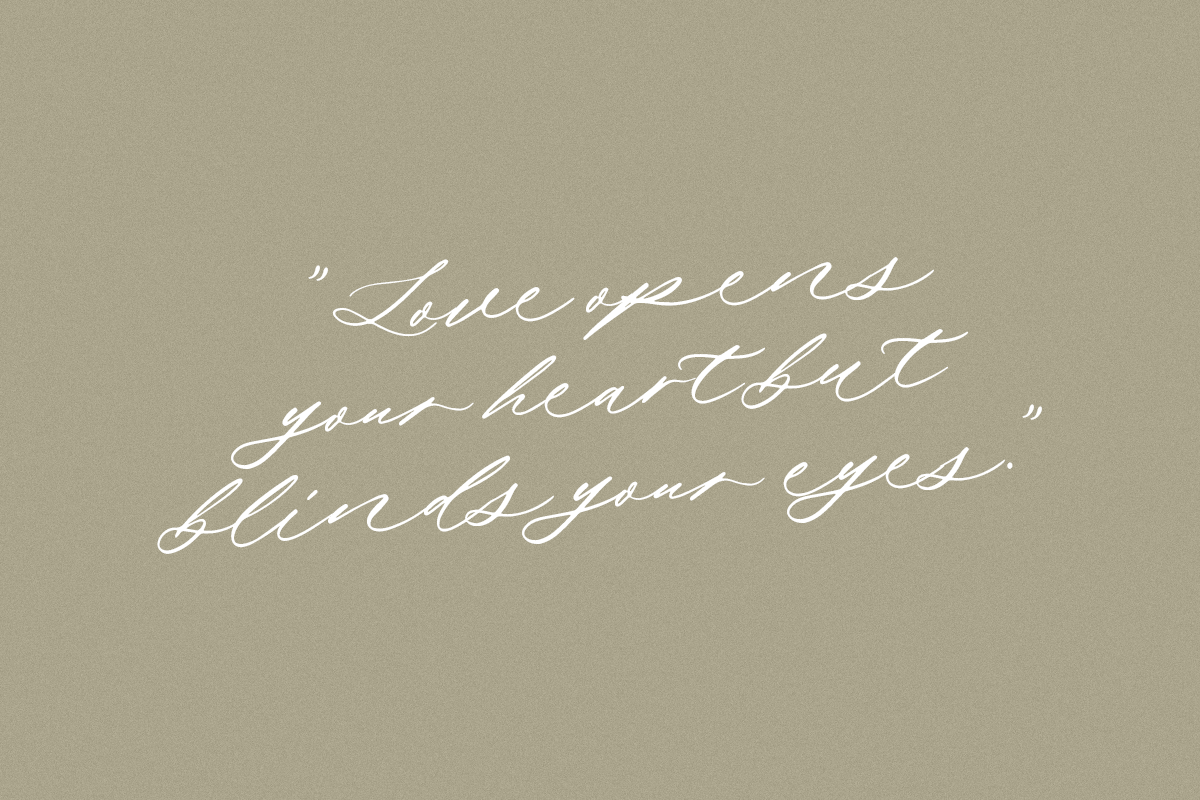 ”Love opens
your heart but
blinds your eyes.”